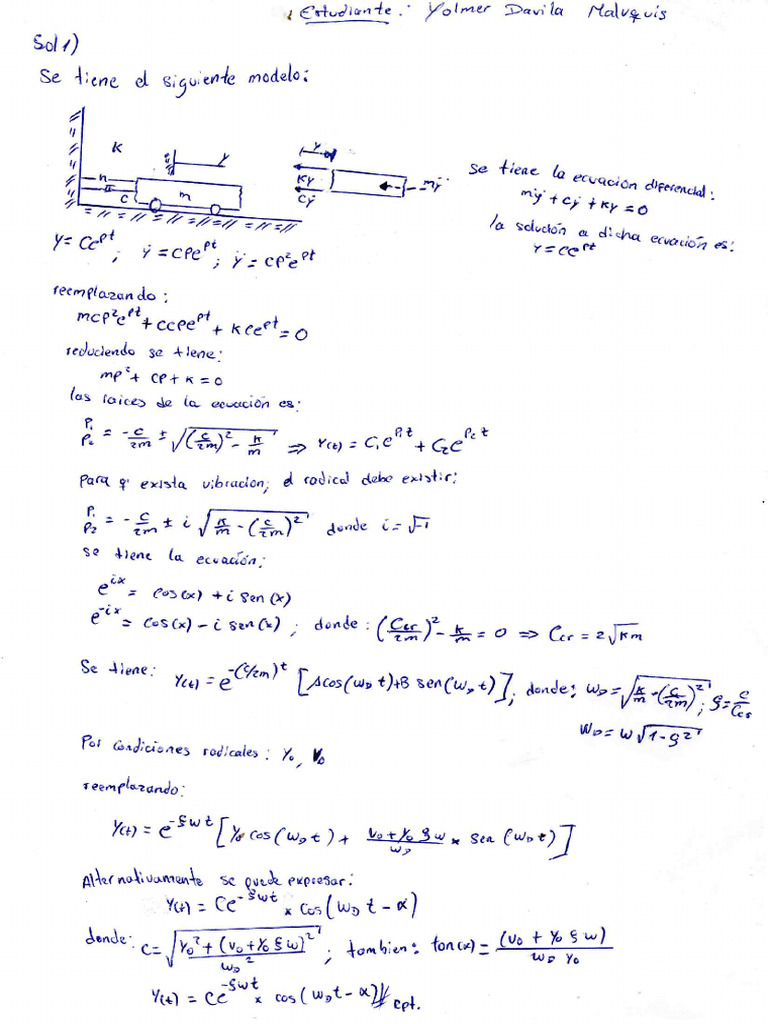 Estudiante: Yolmer Davila Malvquis
Sol 1)
Se tiene el siguiente modelo:
K
y
m
c
y
Ky
cẏ
mÿ
Se tiene la ecuación diferencial:
mÿ + cẏ + Ky = 0
la solución a dicha ecuación es:
Y = Ce^pt
Y = Ce^pt ; ẏ = CPe^pt ; ÿ = CP²e^pt
reemplazando:
mCP²e^pt + cCPe^pt + KCe^pt = 0
reduciendo se tiene:
mp² + cp + K = 0
las raices de la ecuación es:
P₁ P₂ = -c/2m ± √((c/2m)² - K/m) ⇒ Y(t) = C₁e^P₁t + C₂e^P₂t
Para q' exista vibracion; el radical debe existir:
P₁ P₂ = -c/2m ± i √(K/m - (c/2m)²) donde i = √-1
se tiene la ecuación:
e^ix = cos(x) + i sen(x)
e^-ix = cos(x) - i sen(x) ; donde: (Ccr/2m)² - K/m = 0 ⇒ Ccr = 2√Km
Se tiene: Y(t) = e^-(c/2m)t [Acos(ω_D t) + B sen(ω_D t)]; donde: ω_D = √(K/m - (c/2m)²) ; ξ = c/Ccr
ω_D = ω√(1-ξ²)
Por condiciones radicales: Y₀, V₀
reemplazando:
Y(t) = e^-ξωt [Y₀ cos(ω_D t) + (V₀ + Y₀ ξ ω)/ω_D * sen (ω_D t)]
Alternativamente se puede expresar:
Y(t) = Ce^-ξωt * cos(ω_D t - α)
donde: C = √(Y₀² + (V₀ + Y₀ ξ ω)²/ω_D²) ; tambien: tan(α) = (V₀ + Y₀ ξ ω)/(ω_D Y₀)
Y(t) = Ce^-ξωt * cos(ω_D t - α)// cpt.